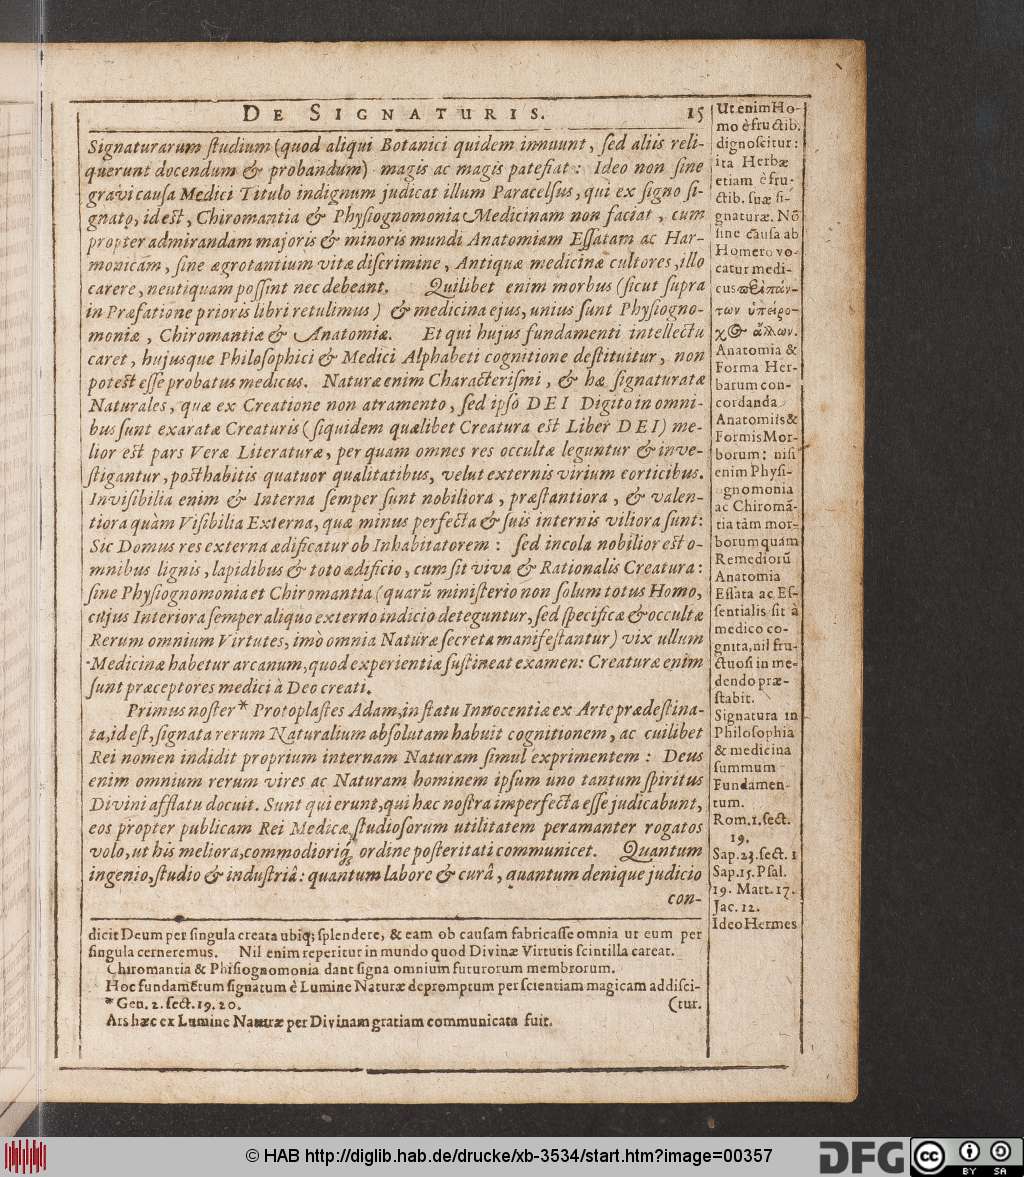 DE SIGNATURIS. 15
Signaturarum ſtudium (quod aliqui Botanici quidem innuunt, ſed aliis reli-
querunt docendum & probandum) magis ac magis patefiat: Ideo non ſine
gravi cauſa Medici Titulo indignum judicat illum Paracelſus, qui ex ſigno ſi-
gnato, id eſt, Chiromantia & Phyſiognomonia Medicinam non faciat, cum
propter admirandam majoris & minoris mundi Anatomiam Eſſatam ac Har-
monicam, ſine ægrotantium vitæ diſcrimine, Antiquæ medicinæ cultores, illo
carere, neutiquam poſſint nec debeant. Quilibet enim morbus (ſicut ſupra
in Præfatione prioris libri retulimus) & medicina ejus, unius ſunt Phyſiogno-
moniæ, Chiromantiæ & Anatomiæ. Et qui hujus fundamenti intellectu
caret, hujusque Philoſophici & Medici Alphabeti cognitione deſtituitur, non
poteſt eſſe probatus medicus. Naturæ enim Characteriſmi, & hæ ſignaturatæ
Naturales, quæ ex Creatione non atramento, ſed ipſo DEI Digito in omni-
bus ſunt exaratæ Creaturis (ſiquidem quælibet Creatura eſt Liber DEI) me-
lior eſt pars Veræ Literaturæ, per quam omnes res occultæ leguntur & inve-
ſtigantur, poſthabitis quatuor qualitatibus, velut externis virium corticibus.
Inviſibilia enim & Interna ſemper ſunt nobiliora, præſtantiora, & valen-
tiora quàm Viſibilia Externa, quæ minus perfecta & ſuis internis viliora ſunt:
Sic Domus res externa ædificatur ob Inhabitatorem: ſed incola nobilior eſt o-
mnibus lignis, lapidibus & toto ædificio, cum ſit viva & Rationalis Creatura:
ſine Phyſiognomonia et Chiromantia (quarū miniſterio non ſolum totus Homo,
cujus Interiora ſemper aliquo externo indicio deteguntur, ſed ſpecificæ & occultæ
Rerum omnium Virtutes, imò omnia Naturæ ſecreta manifeſtantur) vix ullum
Medicinæ habetur arcanum, quod experientiæ ſuſtineat examen: Creaturæ enim
ſunt præceptores medici à Deo creati.
Primus noſter * Protoplaſtes Adam, in ſtatu Innocentiæ ex Arte prædeſtina-
ta, id eſt, ſignata rerum Naturalium abſolutam habuit cognitionem, ac cuilibet
Rei nomen indidit proprium internam Naturam ſimul exprimentem: Deus
enim omnium rerum vires ac Naturam hominem ipſum uno tantum ſpiritus
Divini afflatu docuit. Sunt qui erunt, qui hæc noſtra imperfecta eſſe judicabunt,
eos propter publicam Rei Medicæ ſtudioſorum utilitatem peramanter rogatos
volo, ut his meliora, commodioriq́; ordine poſteritati communicet. Quantum
ingenio, ſtudio & induſtriâ: quantum labore & curâ, quantum denique judicio
con-
dicit Deum per ſingula creata ubiq; ſplendere, & eam ob cauſam fabricaſſe omnia ut eum per
ſingula cerneremus. Nil enim reperitur in mundo quod Divinæ Virtutis ſcintilla careat.
Chiromantia & Phiſiognomonia dant ſigna omnium futurorum membrorum.
Hoc fundamētum ſignatum è Lumine Naturæ depromptum per ſcientiam magicam addiſci-
* Gen. 2. ſect. 19. 20. (tur.
Ars hæc ex Lumine Naturæ per Divinam gratiam communicata fuit.
Ut enim Ho-
mo è fructib.
dignoſcitur:
ita Herbæ
etiam è fru-
ctib. ſuæ ſi-
gnaturæ. Nō
ſine cauſa ab
Homero vo-
catur medi-
cus ϖεὶ πάν-
των ὑπείρο-
χ⊙ ἄλλων.
Anatomia &
Forma Her-
barum con-
cordanda
Anatomiis &
Formis Mor-
borum: niſi
enim Phyſi-
ognomonia
ac Chiromā-
tia tàm mor-
borum quàm
Remediorū
Anatomia
Eſſata ac Eſ-
ſentialis ſit à
medico co-
gnita, nil fru-
ctuoſi in me-
dendo præ-
ſtabit.
Signatura in
Philoſophia
& medicina
ſummum
Fundamen-
tum.
Rom. 1. ſect.
19.
Sap. 23. ſect. 1
Sap. 15. Pſal.
19. Matt. 17.
Jac. 12.
Ideo Hermes
© HAB http://diglib.hab.de/drucke/xb-3534/start.htm?image=00357
DFG
cc BY SA